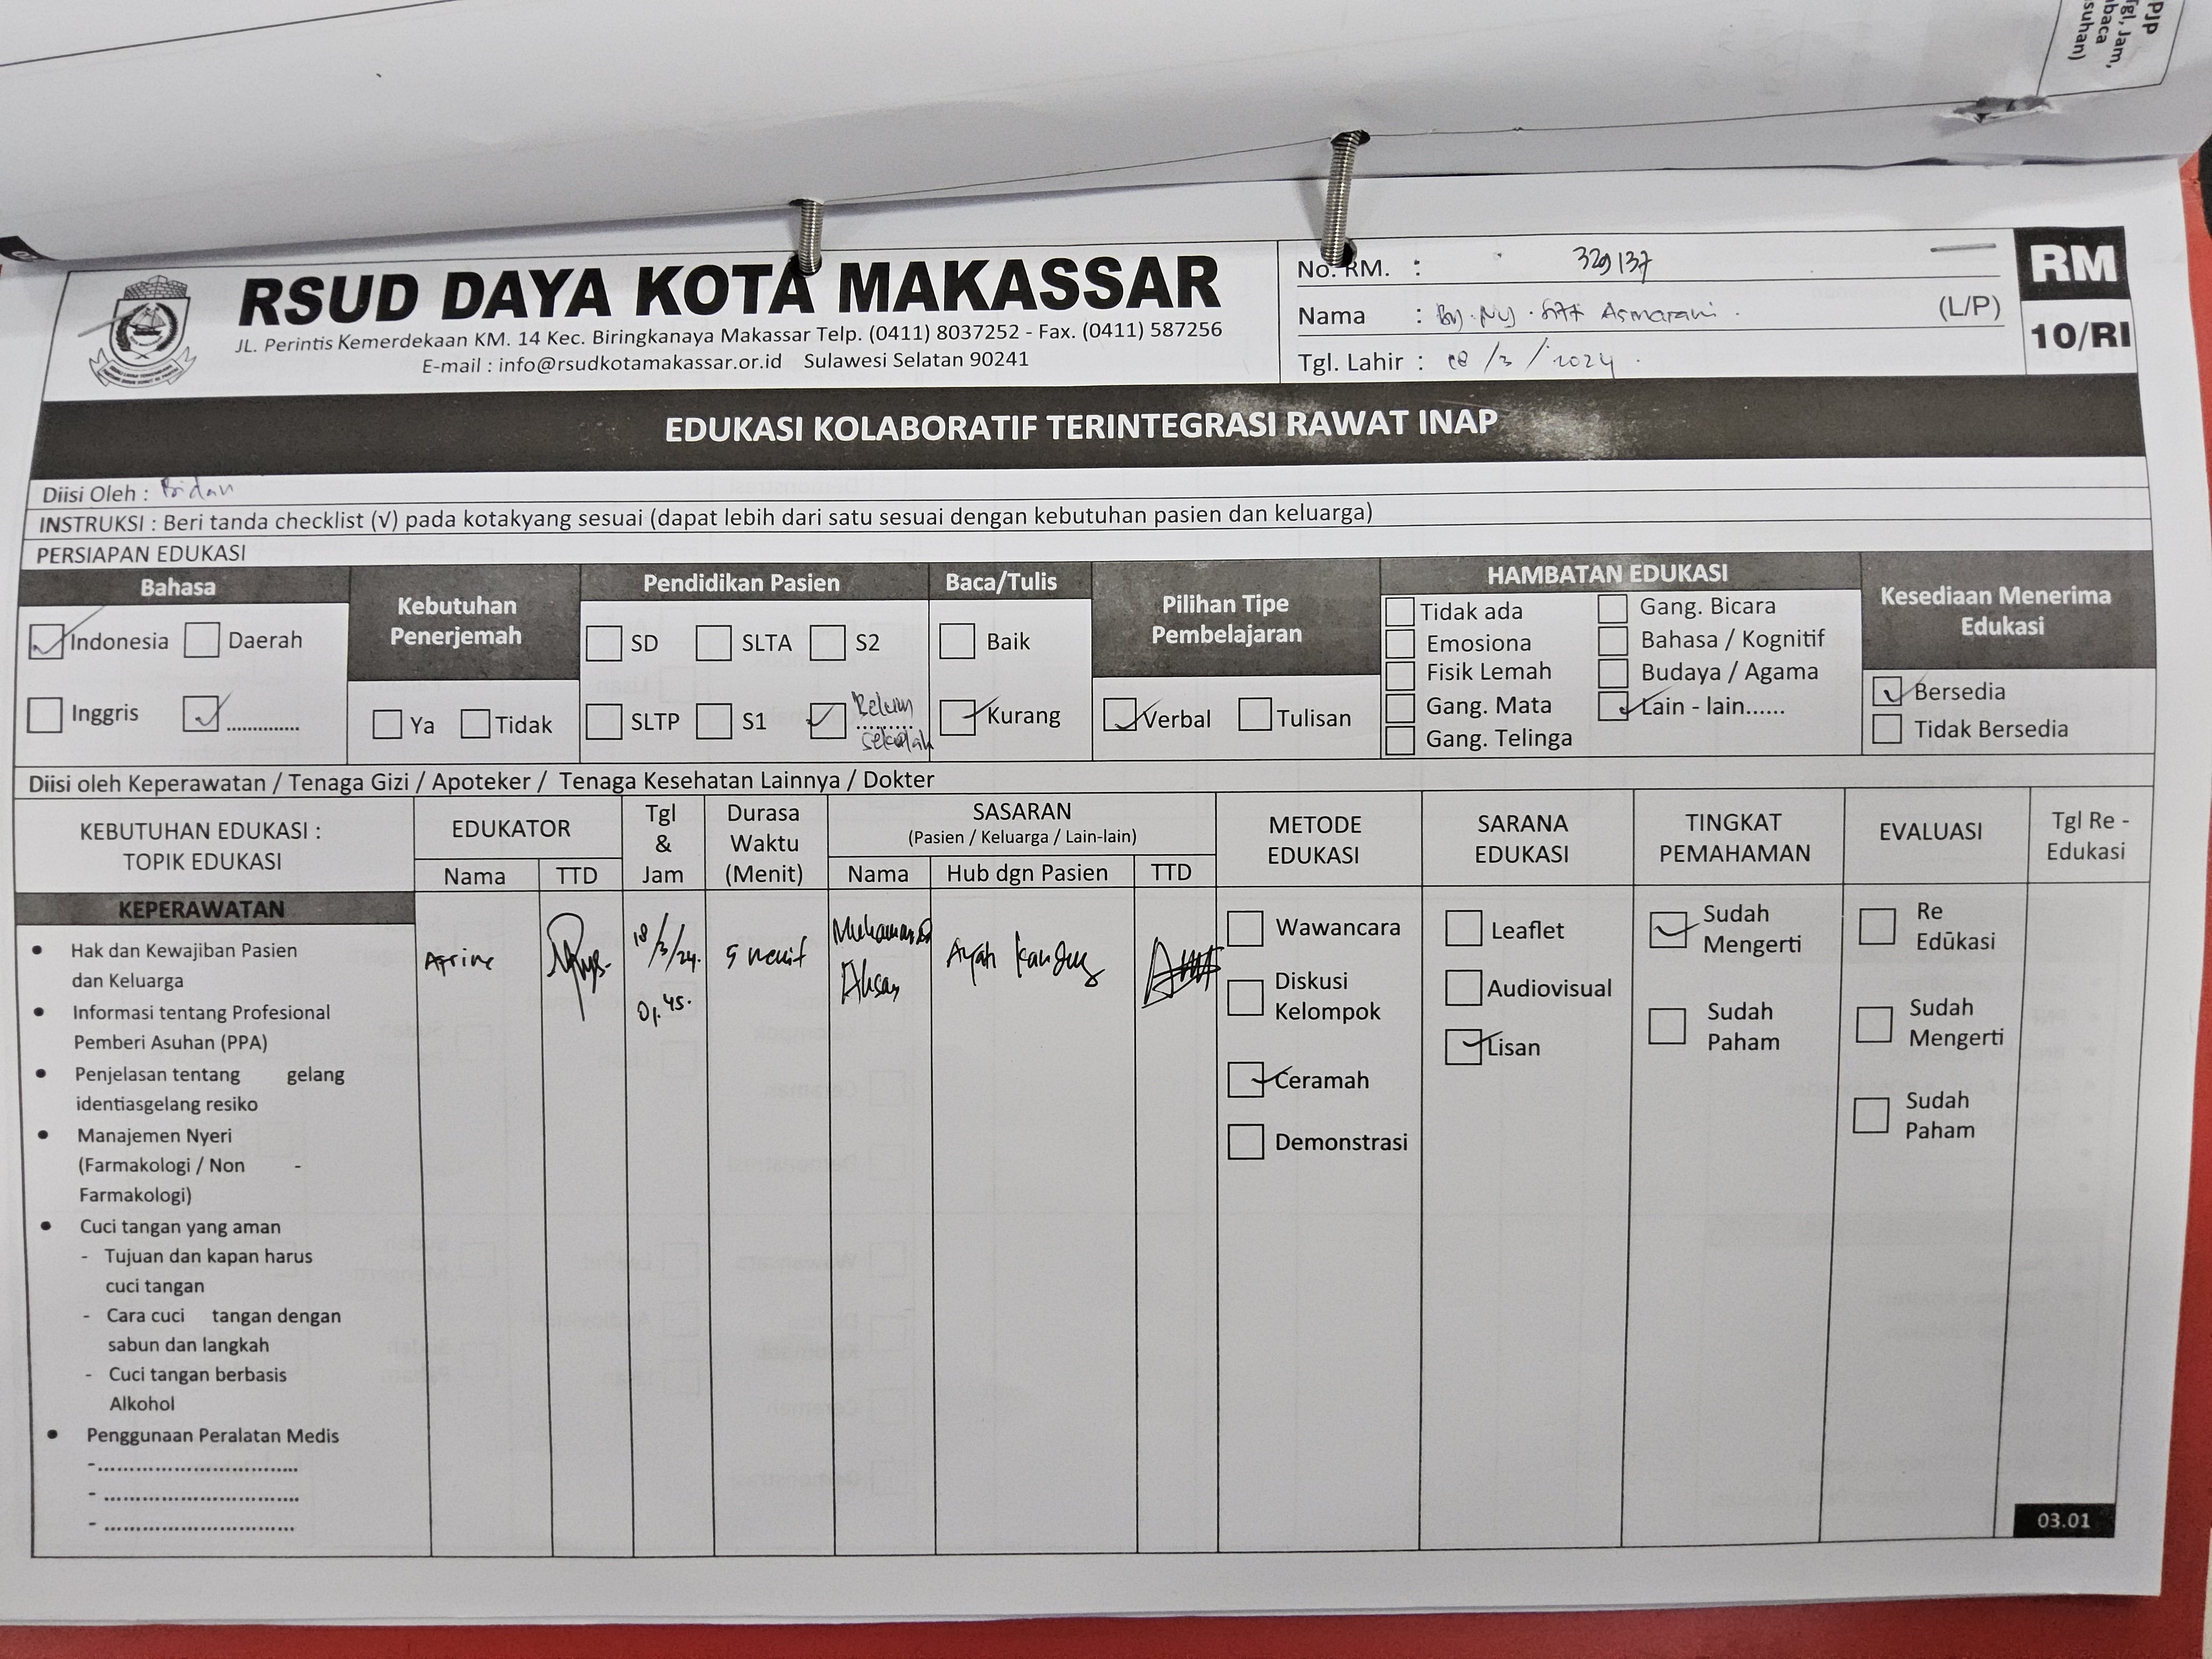 PJP
Tgl, Jam,
baca
suhan)
RSUD DAYA KOTA MAKASSAR
JL. Perintis Kemerdekaan KM. 14 Kec. Biringkanaya Makassar Telp. (0411) 8037252 - Fax. (0411) 587256
E-mail : info@rsudkotamakassar.or.id Sulawesi Selatan 90241
No. RM. : 329137
Nama : By. Ny. Sitti Asmarani (L/P)
Tgl. Lahir : 18 / 3 / 2024
RM
10/RI
EDUKASI KOLABORATIF TERINTEGRASI RAWAT INAP
Diisi Oleh : Bidan
INSTRUKSI : Beri tanda checklist (√) pada kotakyang sesuai (dapat lebih dari satu sesuai dengan kebutuhan pasien dan keluarga)
PERSIAPAN EDUKASI
Bahasa
Indonesia Daerah
Inggris ..............
Kebutuhan
Penerjemah
Ya Tidak
Pendidikan Pasien
SD SLTA S2
SLTP S1 Belum
sekolah
Baca/Tulis
Baik
Kurang
Pilihan Tipe
Pembelajaran
Verbal Tulisan
HAMBATAN EDUKASI
Tidak ada Gang. Bicara
Emosiona Bahasa / Kognitif
Fisik Lemah Budaya / Agama
Gang. Mata Lain - lain......
Gang. Telinga
Kesediaan Menerima
Edukasi
Bersedia
Tidak Bersedia
Diisi oleh Keperawatan / Tenaga Gizi / Apoteker / Tenaga Kesehatan Lainnya / Dokter
KEBUTUHAN EDUKASI :
TOPIK EDUKASI
EDUKATOR
Nama TTD
Tgl
&
Jam
Durasa
Waktu
(Menit)
SASARAN
(Pasien / Keluarga / Lain-lain)
Nama Hub dgn Pasien TTD
METODE
EDUKASI
SARANA
EDUKASI
TINGKAT
PEMAHAMAN
EVALUASI
Tgl Re -
Edukasi
KEPERAWATAN
• Hak dan Kewajiban Pasien
dan Keluarga
• Informasi tentang Profesional
Pemberi Asuhan (PPA)
• Penjelasan tentang gelang
identiasgelang resiko
• Manajemen Nyeri
(Farmakologi / Non -
Farmakologi)
• Cuci tangan yang aman
- Tujuan dan kapan harus
cuci tangan
- Cara cuci tangan dengan
sabun dan langkah
- Cuci tangan berbasis
Alkohol
• Penggunaan Peralatan Medis
-..............................
- .............................
- ............................
18/3/24.
01.45.
5 menit
Muhammad
Ayah kandung
Wawancara
Diskusi
Kelompok
Ceramah
Demonstrasi
Leaflet
Audiovisual
Lisan
Sudah
Mengerti
Sudah
Paham
Re
Edukasi
Sudah
Mengerti
Sudah
Paham
03.01